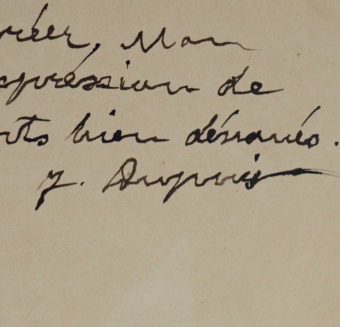 réer, Mon
expréssion de
nts bien dévoués.
y. Dupuis